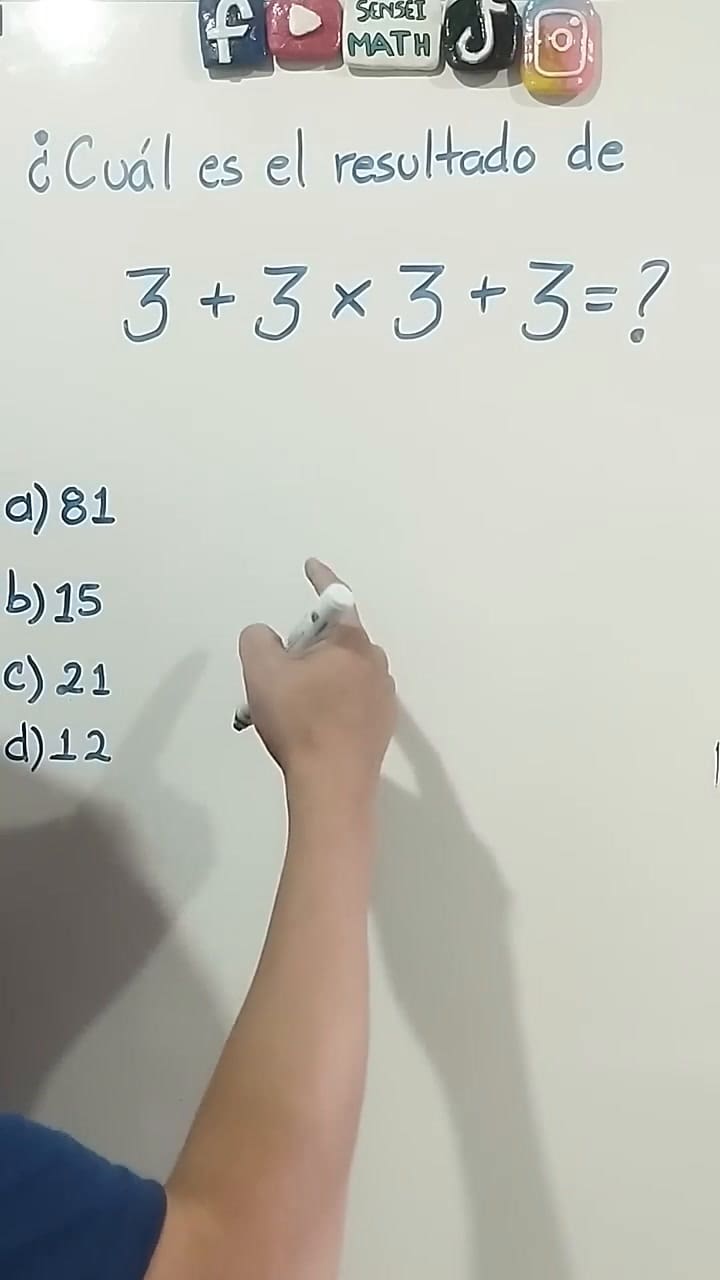 SENSEI
MATH
¿Cuál es el resultado de
3 + 3 × 3 + 3 = ?
a) 81
b) 15
c) 21
d) 12